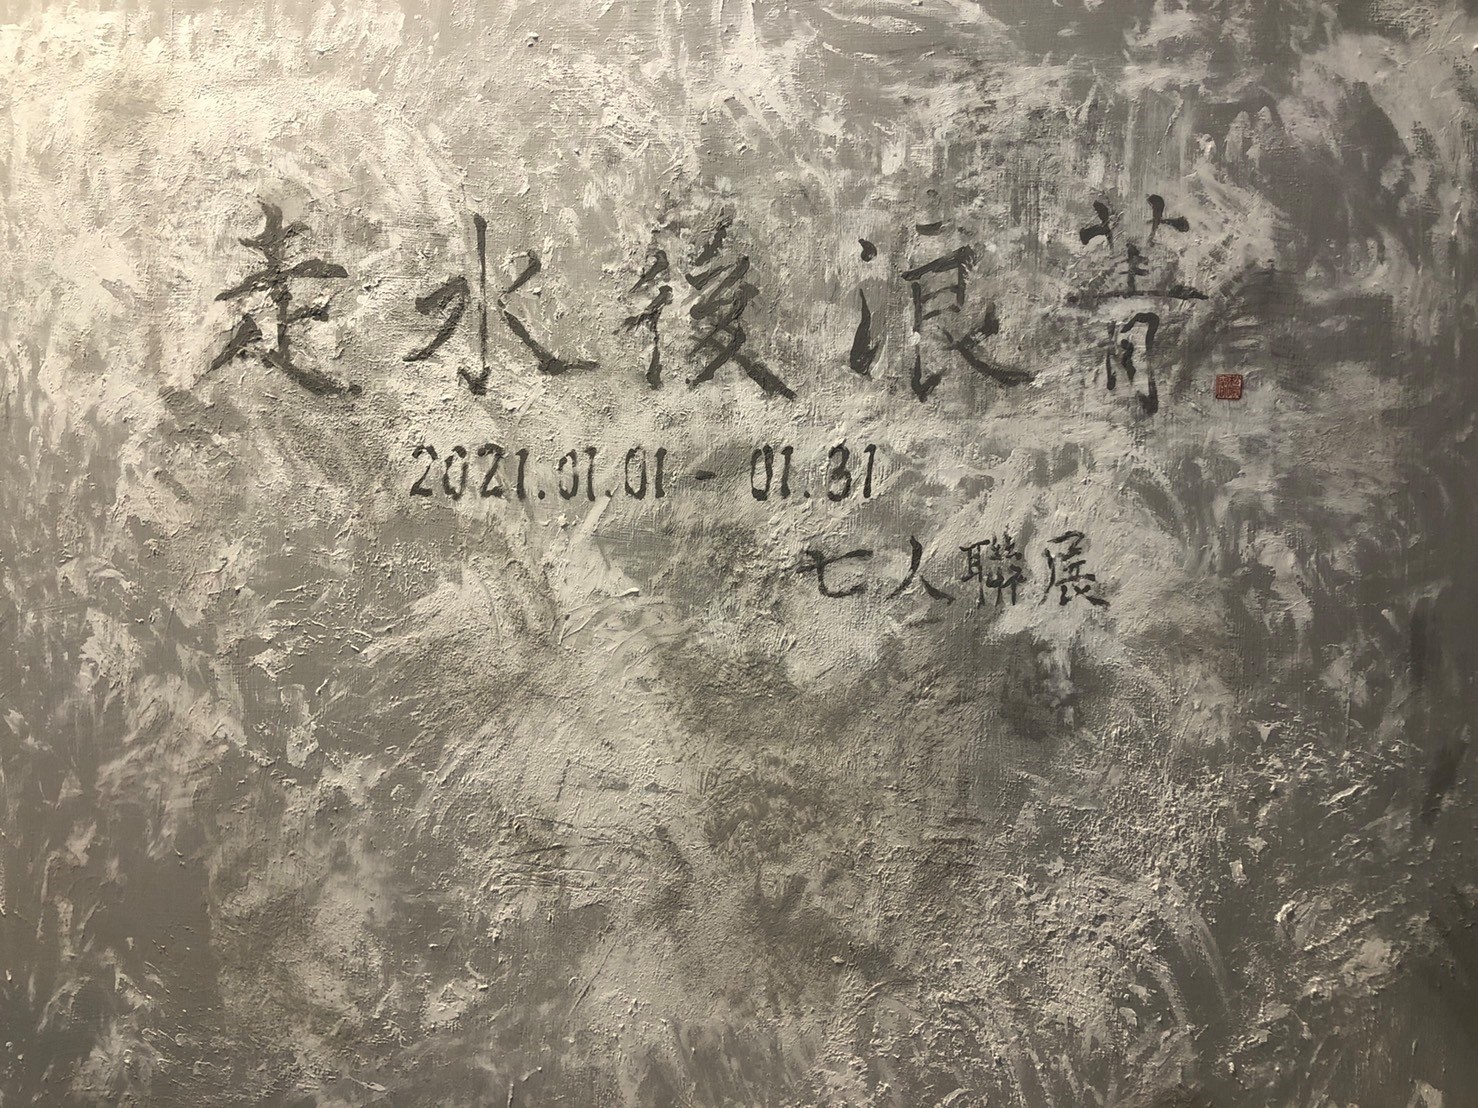 走水後浪菁
2021.01.01 - 01.31
七人聯展